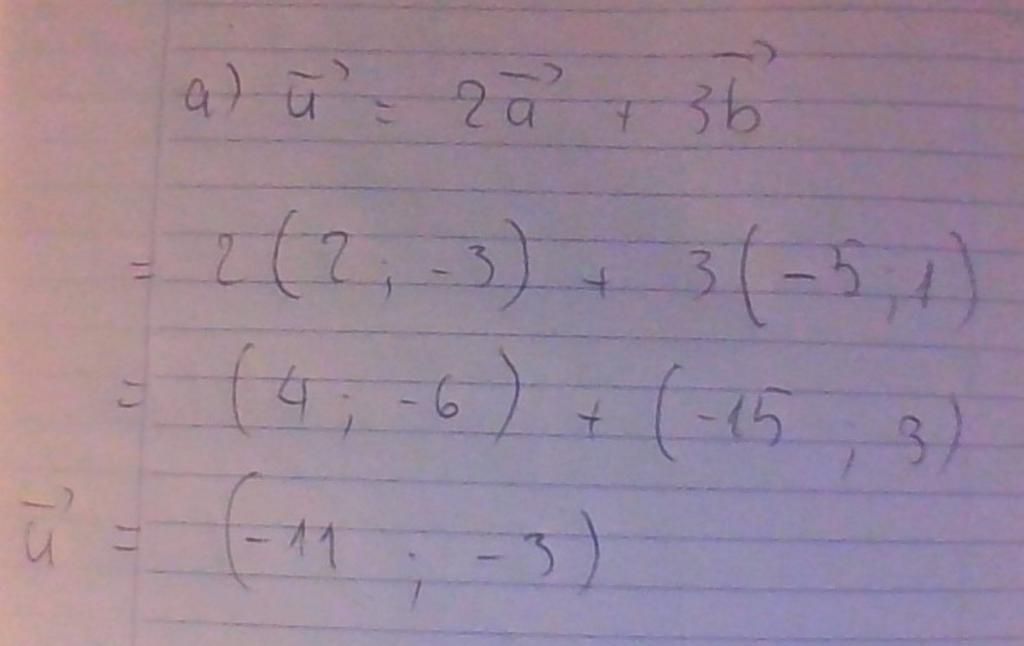 a) u⃗ = 2a⃗ + 3b⃗
= 2(2 ; -3) + 3(-5 ; 1)
= (4 ; -6) + (-15 ; 3)
u⃗ = (-11 ; -3)